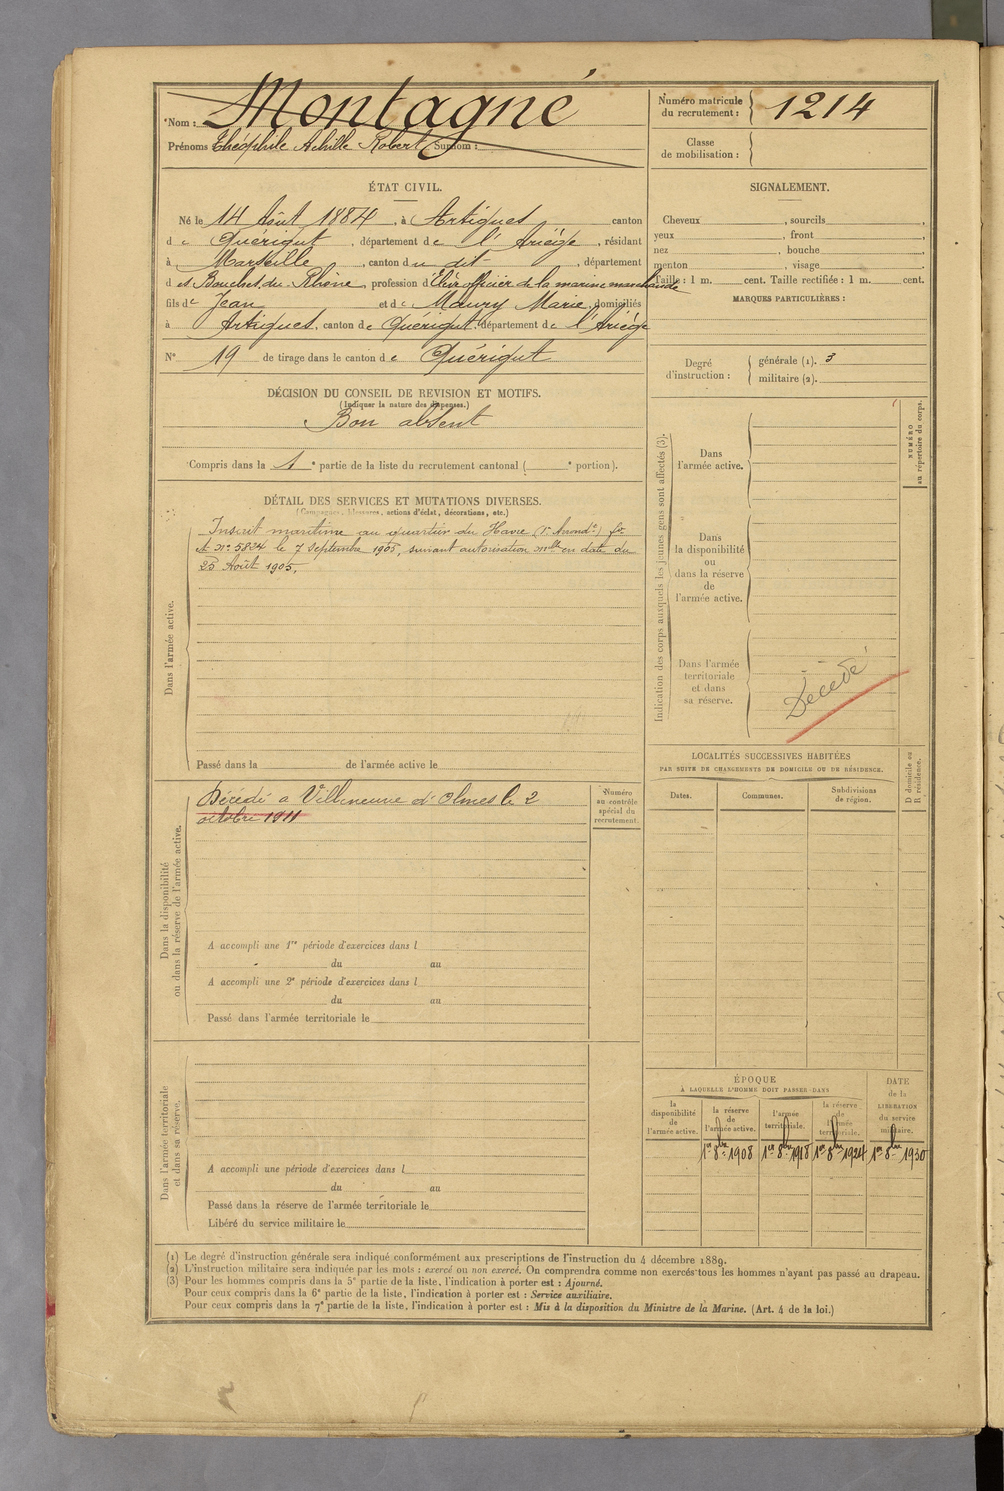 Nom : Montagné
Prénoms Théophile Achille Robert Surnom :
Numéro matricule du recrutement : 1214
Classe de mobilisation :
ÉTAT CIVIL.
Né le 14 Août 1884, à Artigues canton
de Quérigut, département de l'Ariège, résidant
à Marseille, canton du dit, département
des Bouches du Rhône, profession d'Elève officier de la marine marchande
fils de Jean et de Maury Marie, domiciliés
à Artigues, canton de Quérigut, département de l'Ariège
N° 19 de tirage dans le canton de Quérigut
DÉCISION DU CONSEIL DE REVISION ET MOTIFS.
(Indiquer la nature des dispenses.)
Bon absent
Compris dans la 1e partie de la liste du recrutement cantonal ( e portion).
DÉTAIL DES SERVICES ET MUTATIONS DIVERSES.
(Campagnes, blessures, actions d'éclat, décorations, etc.)
Dans l'armée active.
Inscrit maritime au quartier du Havre
et N° 5834 le 7 septembre 1905, suivant autorisation mlle en date du
25 Août 1905.
Passé dans la de l'armée active le
Dans la disponibilité
ou dans la réserve de l'armée active.
Décédé a Villeneuve d'Olmes le 2
octobre 1911
Numéro
au contrôle
spécial du
recrutement.
A accompli une 1re période d'exercices dans l
du au
A accompli une 2e période d'exercices dans l
du au
Passé dans l'armée territoriale le
Dans l'armée territoriale
et dans sa réserve.
A accompli une période d'exercices dans l
du au
Passé dans la réserve de l'armée territoriale le
Libéré du service militaire le
SIGNALEMENT.
Cheveux , sourcils ,
yeux , front ,
nez , bouche ,
menton , visage
Taille : 1 m. cent. Taille rectifiée : 1 m. cent.
MARQUES PARTICULIÈRES :
Degré d'instruction : générale (1). 3
militaire (2).
Indication des corps auxquels les jeunes gens sont affectés (3).
NUMÉRO
au répertoire du corps.
Dans
l'armée active.
Dans
la disponibilité
ou
dans la réserve
de
l'armée active.
Dans l'armée
territoriale
et dans
sa réserve.
Décédé
LOCALITÉS SUCCESSIVES HABITÉES
PAR SUITE DE CHANGEMENTS DE DOMICILE OU DE RÉSIDENCE.
D domicile ou
R résidence.
Dates. Communes. Subdivisions de région.
ÉPOQUE
À LAQUELLE L'HOMME DOIT PASSER DANS
DATE
de la
LIBÉRATION
du service
militaire.
la disponibilité de l'armée active. la réserve de l'armée active. l'armée territoriale. la réserve de l'armée territoriale.
1er 8bre 1908 1er 8bre 1918 1er 8bre 1924 1er 8bre 1930
(1) Le degré d'instruction générale sera indiqué conformément aux prescriptions de l'instruction du 4 décembre 1889.
(2) L'instruction militaire sera indiquée par les mots : exercé ou non exercé. On comprendra comme non exercés tous les hommes n'ayant pas passé au drapeau.
(3) Pour les hommes compris dans la 5e partie de la liste, l'indication à porter est : Ajourné.
Pour ceux compris dans la 6e partie de la liste, l'indication à porter est : Service auxiliaire.
Pour ceux compris dans la 7e partie de la liste, l'indication à porter est : Mis à la disposition du Ministre de la Marine. (Art. 4 de la loi.)